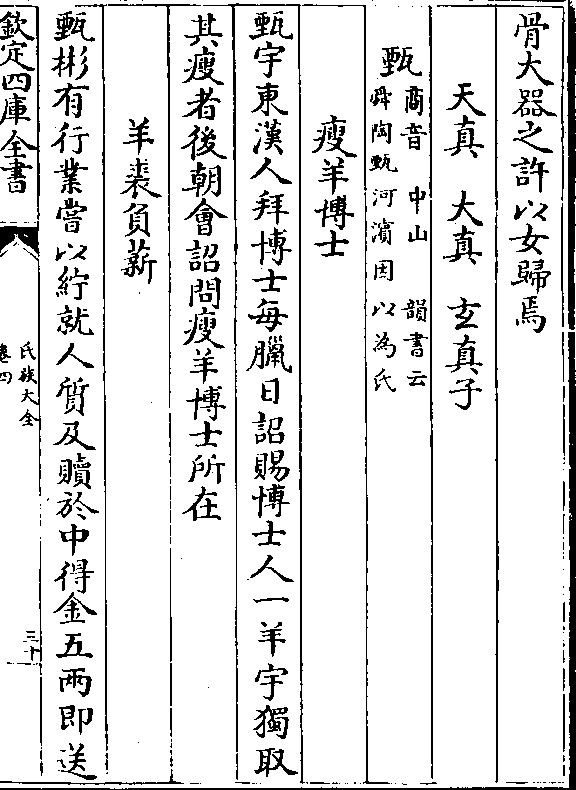 骨大器之許以女歸焉
天真　大真　玄真子
甄
商音　中山　韻書云
舜陶甄河濵因以為氏
瘦羊博士
甄宇東漢人拜博士每臘日詔賜博士人一羊宇獨取
其瘦者後朝會詔問瘦羊博士所在
羊裘負薪
甄彬有行業嘗以紵就人質及贖於中得金五兩即送
欽定四庫全書
氏族大全
卷四
三十